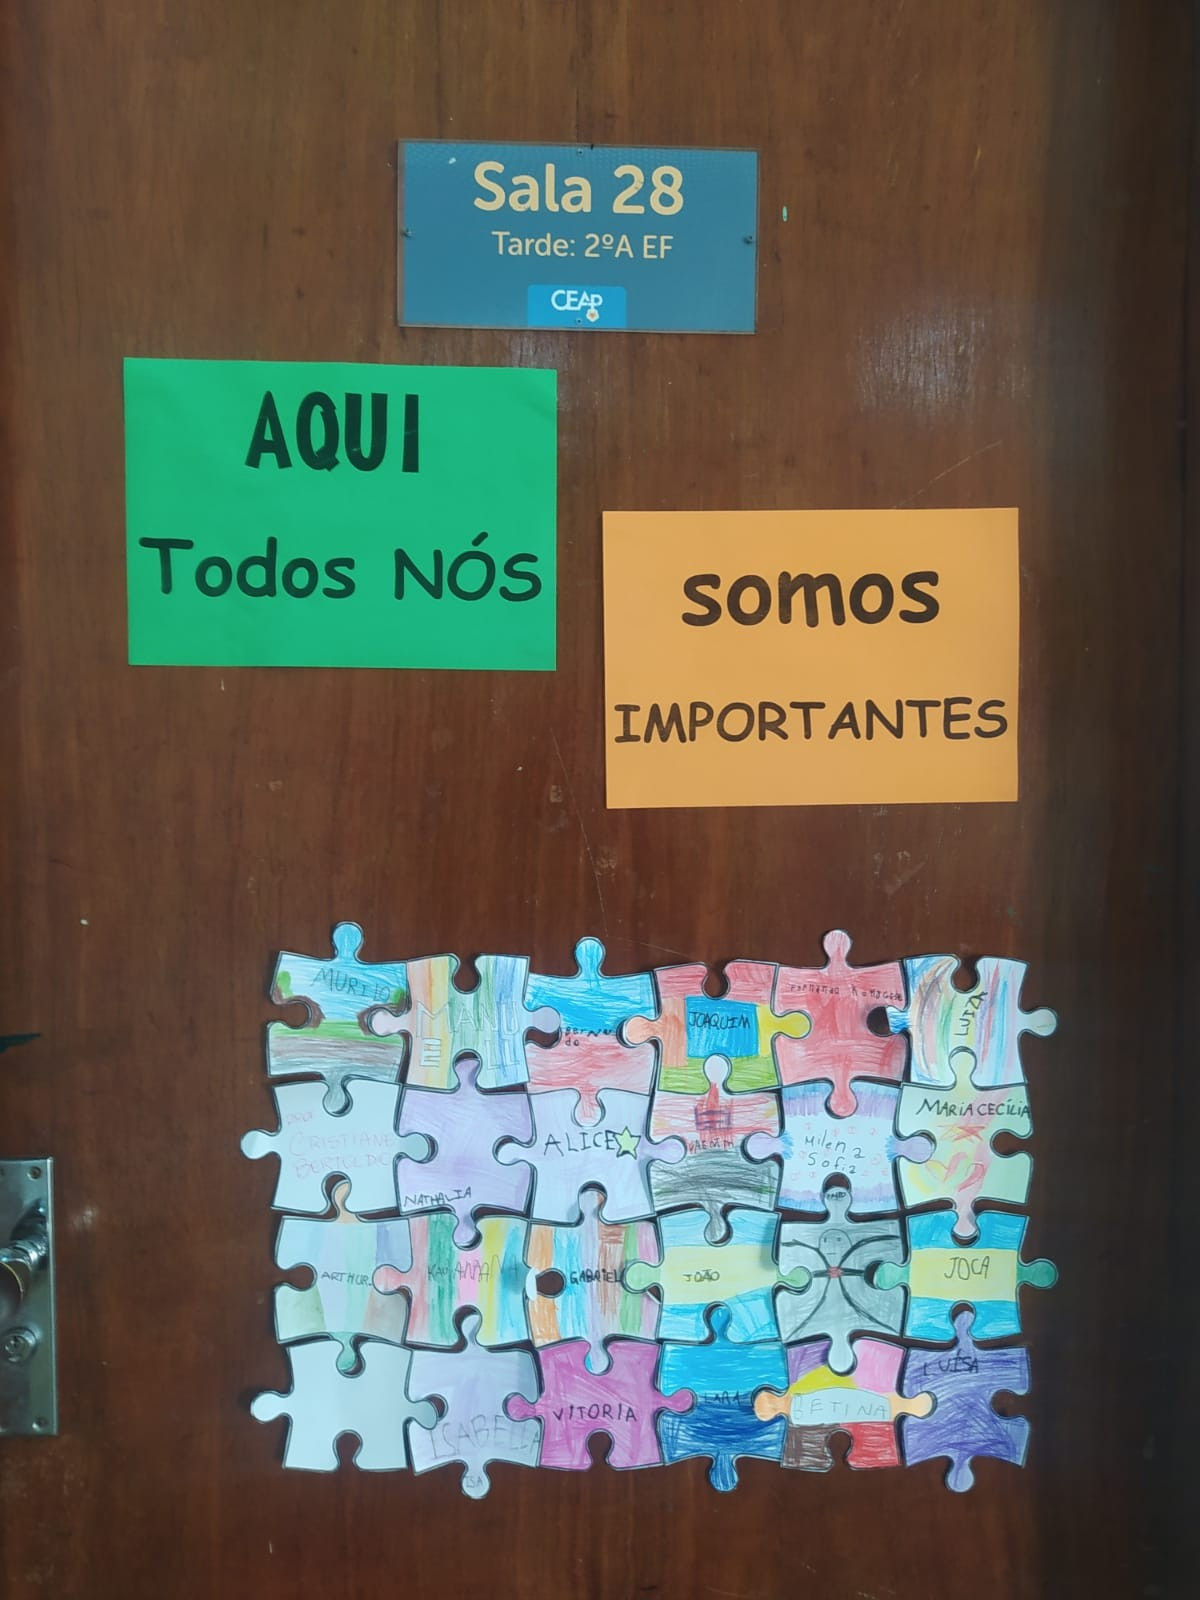 Sala 28
Tarde: 2ºA EF
CEAP
AQUI
Todos NÓS
somos
IMPORTANTES
MURILO
MANU
BERNAR
do
JOAQUIM
Fernando
LUIZA
PRO
CRISTIANE
BERTOLDO
NATHALIA
ALICE
Milena
Sofia
MARIA CECÍLIA
ARTHUR.
KAUANANA
GABRIEL
JOÃO
JOCA
ISABELLA
ISA
VITORIA
LARA
BETINA
LUÍSA